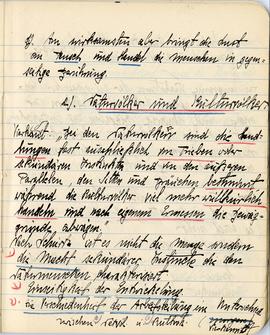 f). Am wirksamsten aber bringt die Lust
am Tausch und Handel die Menschen in gegen-
seitige Berührung.
2.) Naturvölker und Kulturvölker
Vierkandt: "Bei den Naturvölkern sind die Hand-
lungen fast ausschließlich von Trieben oder
sekundären Instinkten und von den äußeren
den Sitten und Gebräuchen bestimmt
während die Kulturvölker viel mehr willkürlich
handeln und nach eigenem Ermessen die Beweg-
gründe abwägen.
Nach Schurtz ist es nicht die Menge sondern
die Macht sekundärer Instinkte die den
Naturmenschen charakterisiert.
Einseitigkeit der Entwicklung
die Verschiedenheit der Arbeitsteilung im Unterschied
zwischen und